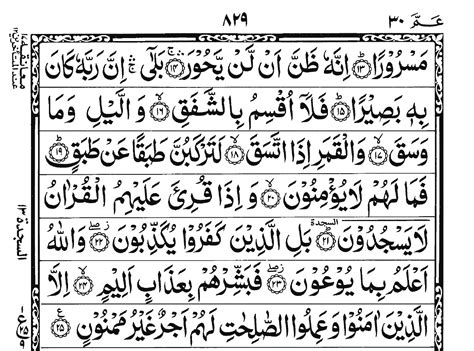 عَمَّ ٣٠
٨٢٩
مَسْرُوْرًا ﴿١٣﴾ اِنَّهٗ ظَنَّ اَنْ لَّنْ يَّحُوْرَ ﴿١٤﴾ بَلٰۤى ۛۚ اِنَّ رَبَّهٗ كَانَ
بِهٖ بَصِيْرًا ﴿١٥﴾ فَلَاۤ اُقْسِمُ بِالشَّفَقِ ﴿١٦﴾ وَ الَّيْلِ وَمَا
وَسَقَ ﴿١٧﴾ وَالْقَمَرِ اِذَا اتَّسَقَ ﴿١٨﴾ لَتَرْكَبُنَّ طَبَقًا عَنْ طَبَقٍ ﴿١٩﴾
فَمَا لَهُمْ لَا يُؤْمِنُوْنَ ﴿٢٠﴾ وَ اِذَا قُرِئَ عَلَيْهِمُ الْقُرْاٰنُ
لَا يَسْجُدُوْنَ ﴿٢١﴾ السجدة بَلِ الَّذِيْنَ كَفَرُوْا يُكَذِّبُوْنَ ﴿٢٢﴾ وَاللّٰهُ
اَعْلَمُ بِمَا يُوْعُوْنَ ﴿٢٣﴾ فَبَشِّرْهُمْ بِعَذَابٍ اَلِيْمٍ ﴿٢٤﴾ اِلَّا
الَّذِيْنَ اٰمَنُوْا وَعَمِلُوا الصّٰلِحٰتِ لَهُمْ اَجْرٌ غَيْرُ مَمْنُوْنٍ ﴿٢٥﴾
السجدة ١٣